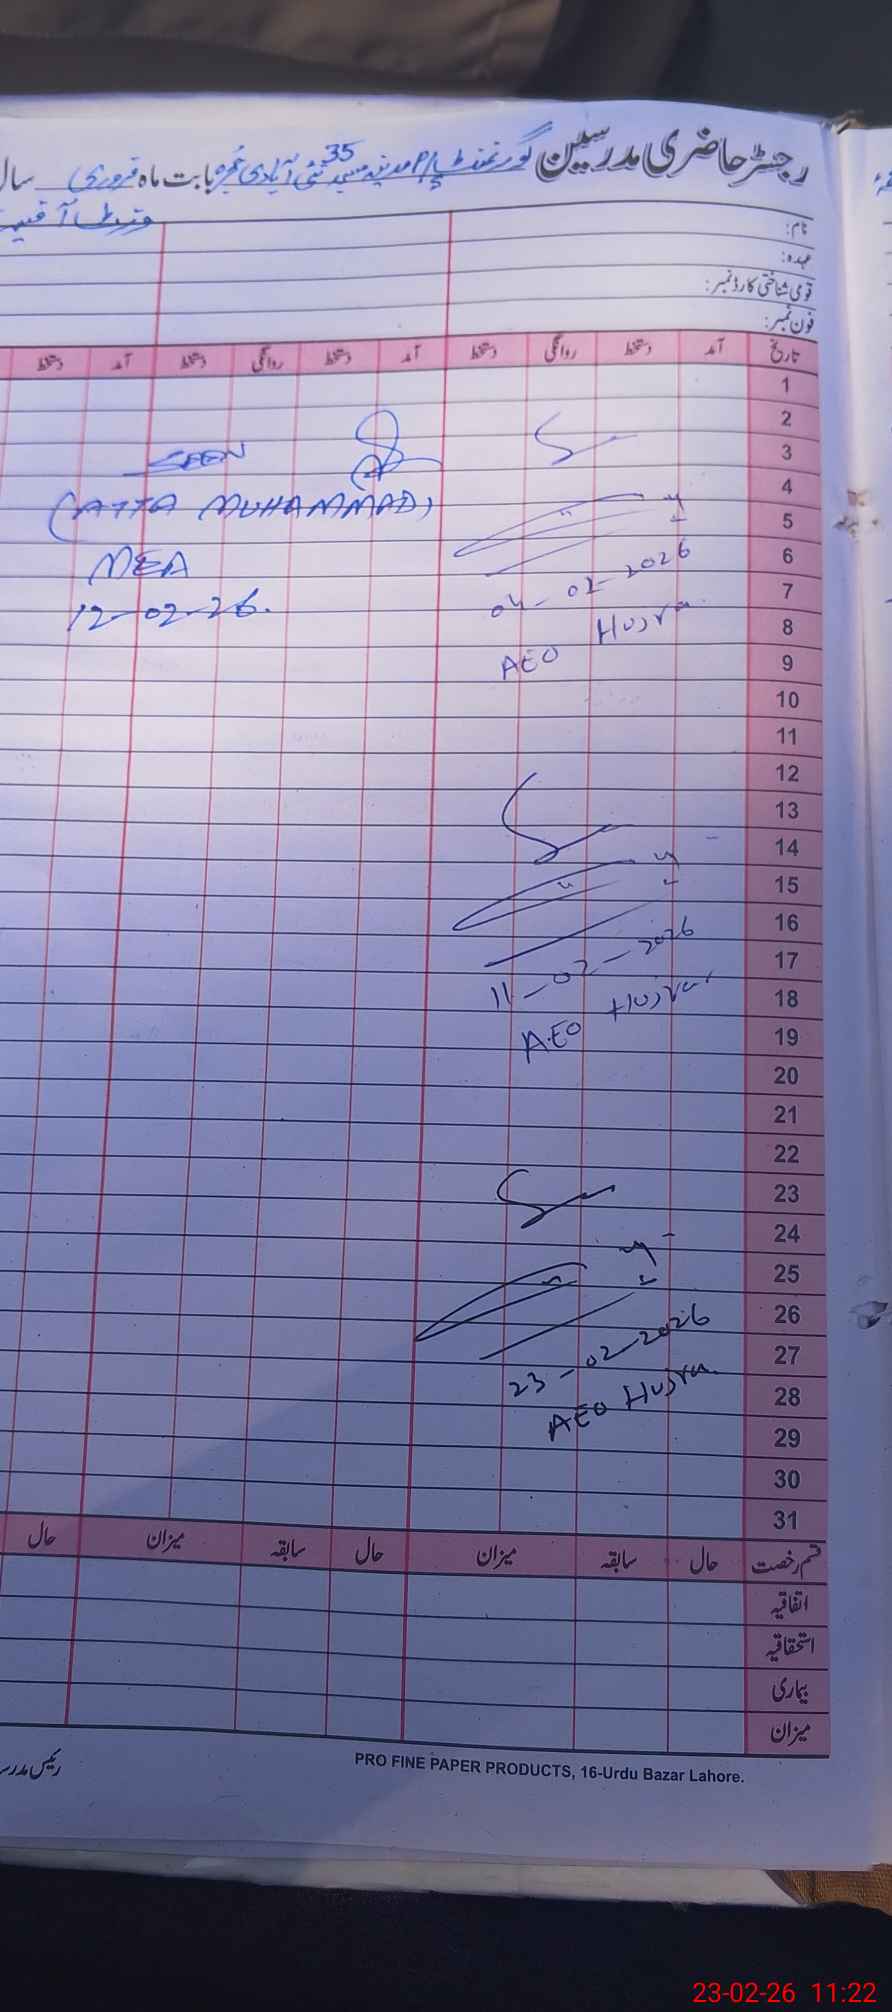 رجسٹر حاضری مدرسین گورنمنٹ مدینہ مسجد نئی آبادی 35 بابت ماہ فروری سال
نام:
عہدہ:
قومی شناختی کارڈ نمبر:
فون نمبر:
تاریخ آمد دستخط روانگی دستخط آمد دستخط روانگی دستخط آمد دستخط
1
2
3
4
5
6
7
8
9
10
11
12
13
14
15
16
17
18
19
20
21
22
23
24
25
26
27
28
29
30
31
04-02-2026
AEO Hujra
11-02-2026
AEO Hujra
23-02-2026
AEO Hujra
SEEN
(ATTA MUHAMMAD)
MEA
12-02-26.
قسم رخصت حال سابقہ میزان حال سابقہ میزان حال
اتفاقیہ
استحقاقیہ
بیماری
میزان
PRO FINE PAPER PRODUCTS, 16-Urdu Bazar Lahore.
رئیس
23-02-26 11:22